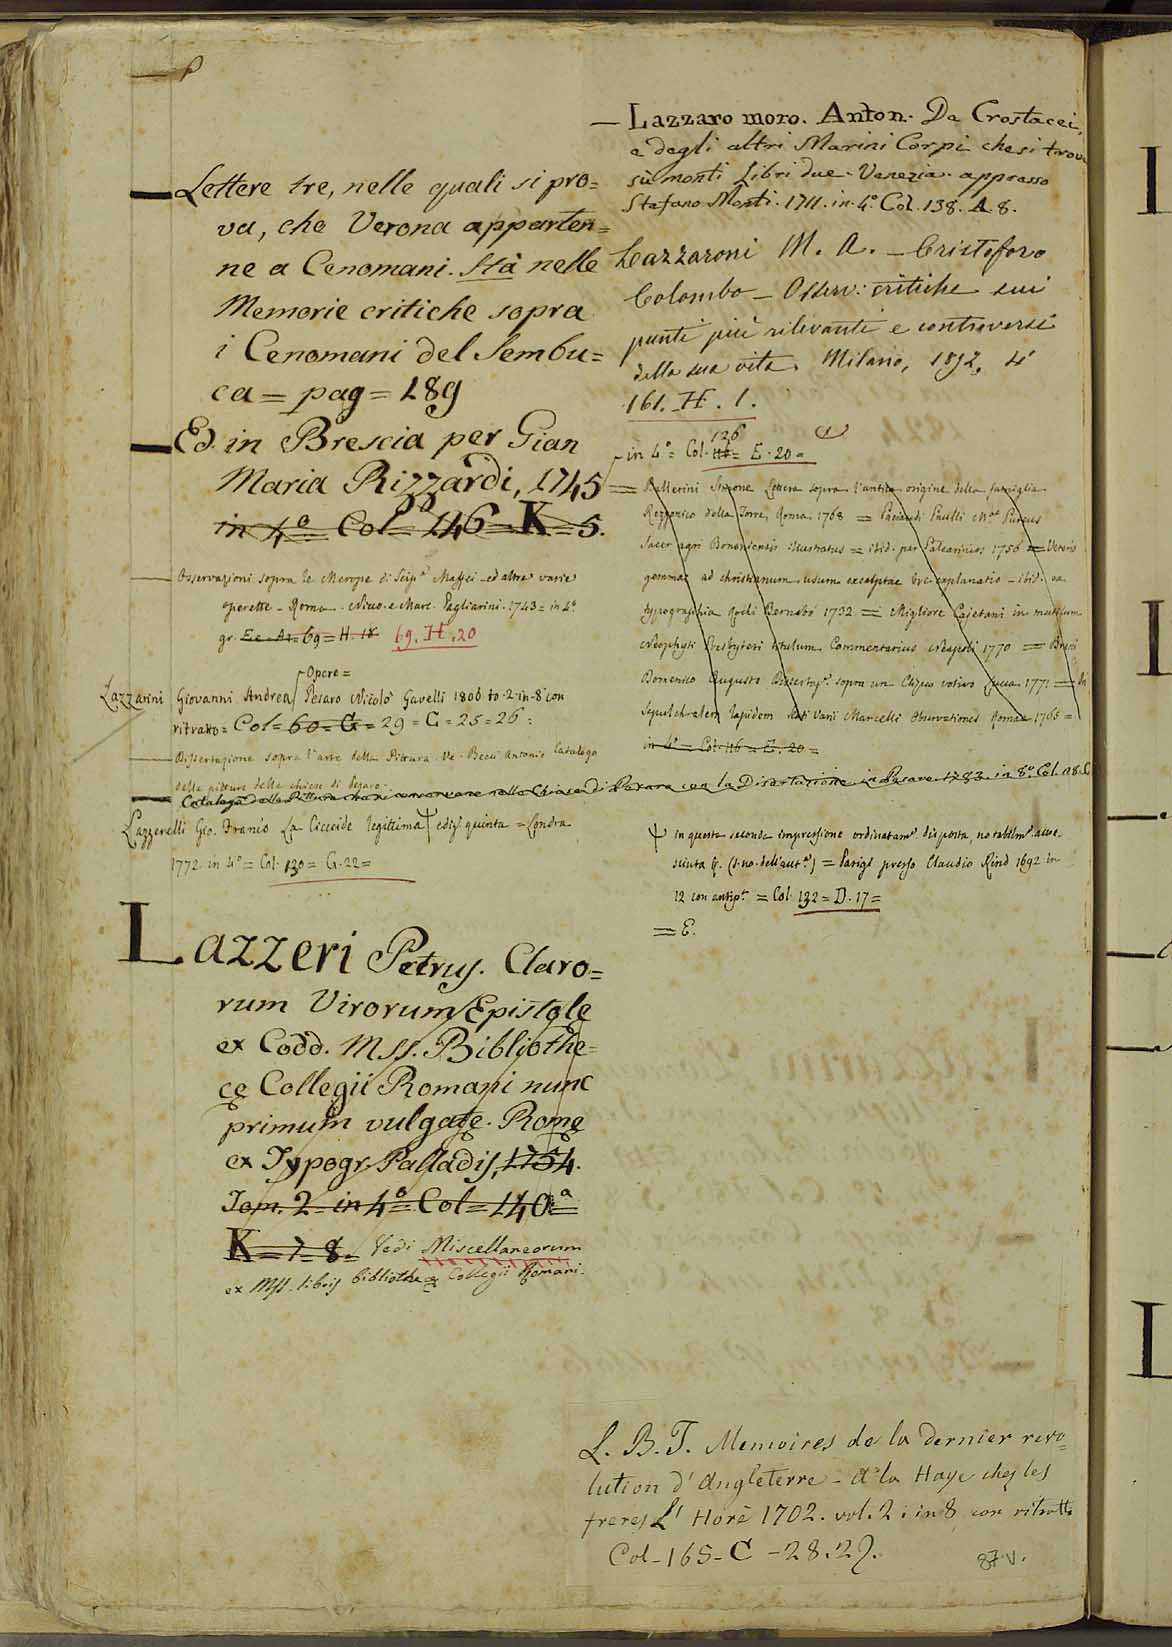 Lettere tre, nelle quali si pro=
va, che Verona apparten=
ne a Cenomani. Stà nelle
Memorie critiche sopra
i Cenomani del Sembu=
ca = pag = 189
Ed. in Brescia per Gian
Maria Rizzardi, 1745
in 4º Col 146 = K = 5.
Osservazioni sopra la Merope di Scip.e Maffei ed altre varie
operette - Roma - Nicco. e Marc. Pagliarini. 1743 = in 4º
gr. 69 = H. 69. H. 20
Opere =
Lazzarini Giovanni Andrea Pesaro Nicolò Gavelli 1806 to. 2 in 8º con
ritratto = Col = 60 = G = 29 = C = 25 = 26 =
Dissertazione sopra l'arte della Pittura. Ve. Becci Antonio Catalogo
delle pitture delle chiese di Pesaro
Catalogo delle Pitture che si conservano nelle Chiese di Pesaro con la Dissertazione in Pesaro 1783. in 8º Col. 118.
Lazzerelli Gio. Franco La Cicceide legittima ediz.e quinta = Londra
1772 in 4º = Col. 130 = G. 22 =
Lazzeri Petrus. Claro=
rum Virorum Epistolę
ex Codd. Mss. Bibliothe=
cę Collegii Romani nunc
primum vulgatę. Romę
ex Typogr. Palladis, 1754.
Tom. 2 in 4º = Col = 140ª =
K = 7 = 8. Vedi Miscellaneorum
ex Mss. libris bibliothecę Collegii Romani.
Lazzaro moro. Anton. De Crostacei,
e degli altri Marini Corpi che si trov
su monti Libri due. Venezia. appresso
Stefano Monti. 1711. in 4º Col. 138. A. 8.
Lazzaroni M. A. - Cristoforo
Colombo - Osserv: critiche sui
punti più rilevanti e controversi
della sua vita. Milano, 1892, 4º
161. H. 1.
126
in 4º = Col. 116 = E. 20 =
= Ballerini Simone Lettera sopra l'antica origine della famiglia
Rezzonico della Torre, Roma 1768 = Paciaudi Paulli M.a Puteus
Sacer agri Bononiensis illustratus = ibid. per Palearinios 1756 = Veteris
gemmae ad christianum usum excalptae brevis explanatio - ibid. ex
typographia Rochi Bernabò 1732 = Migliore Cajetani in mutilum
Neophyti Presbyteri titulum Commentarius Neapoli 1770 = Bracci
Domenico Augusto Dissertaz.e sopra un Clipeo votivo Lucca 1771 = In
Sepulchralem lapidem Sexti Varii Marcelli Observationes Romae 1765 =
in 4º = Col. 116 = E. 20 =
in questa seconda impressione ordinatam.e disposta, notabilm.e accre
sciuta (s. no. dell'aut.e) = Parigi presso Claudio Rind 1692 in
12 con antip.a = Col. 132 = D. 17 =
= E.
L. B. T. Memoires de la dernier revo=
lution d'Angleterre - a la Haye chez les
freres L'Honorè 1702. vol. 2 in 8 con ritratti
Col - 165 - C - 28. 29.
87 v.